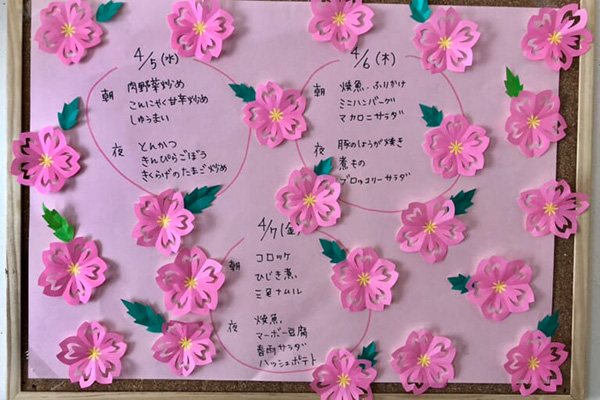 4/5(水)
朝
肉野菜炒め
こんにゃく甘辛炒め
しゅうまい
夜
とんかつ
きんぴらごぼう
きくらげのたまご炒め
4/6(木)
朝
焼魚、ふりかけ
ミニハンバーグ
マカロニサラダ
夜
豚のしょうが焼き
煮もの
ブロッコリーサラダ
4/7(金)
朝
コロッケ
ひじき煮
三色ナムル
夜
焼魚
マーボー豆腐
春雨サラダ
ハッシュポテト